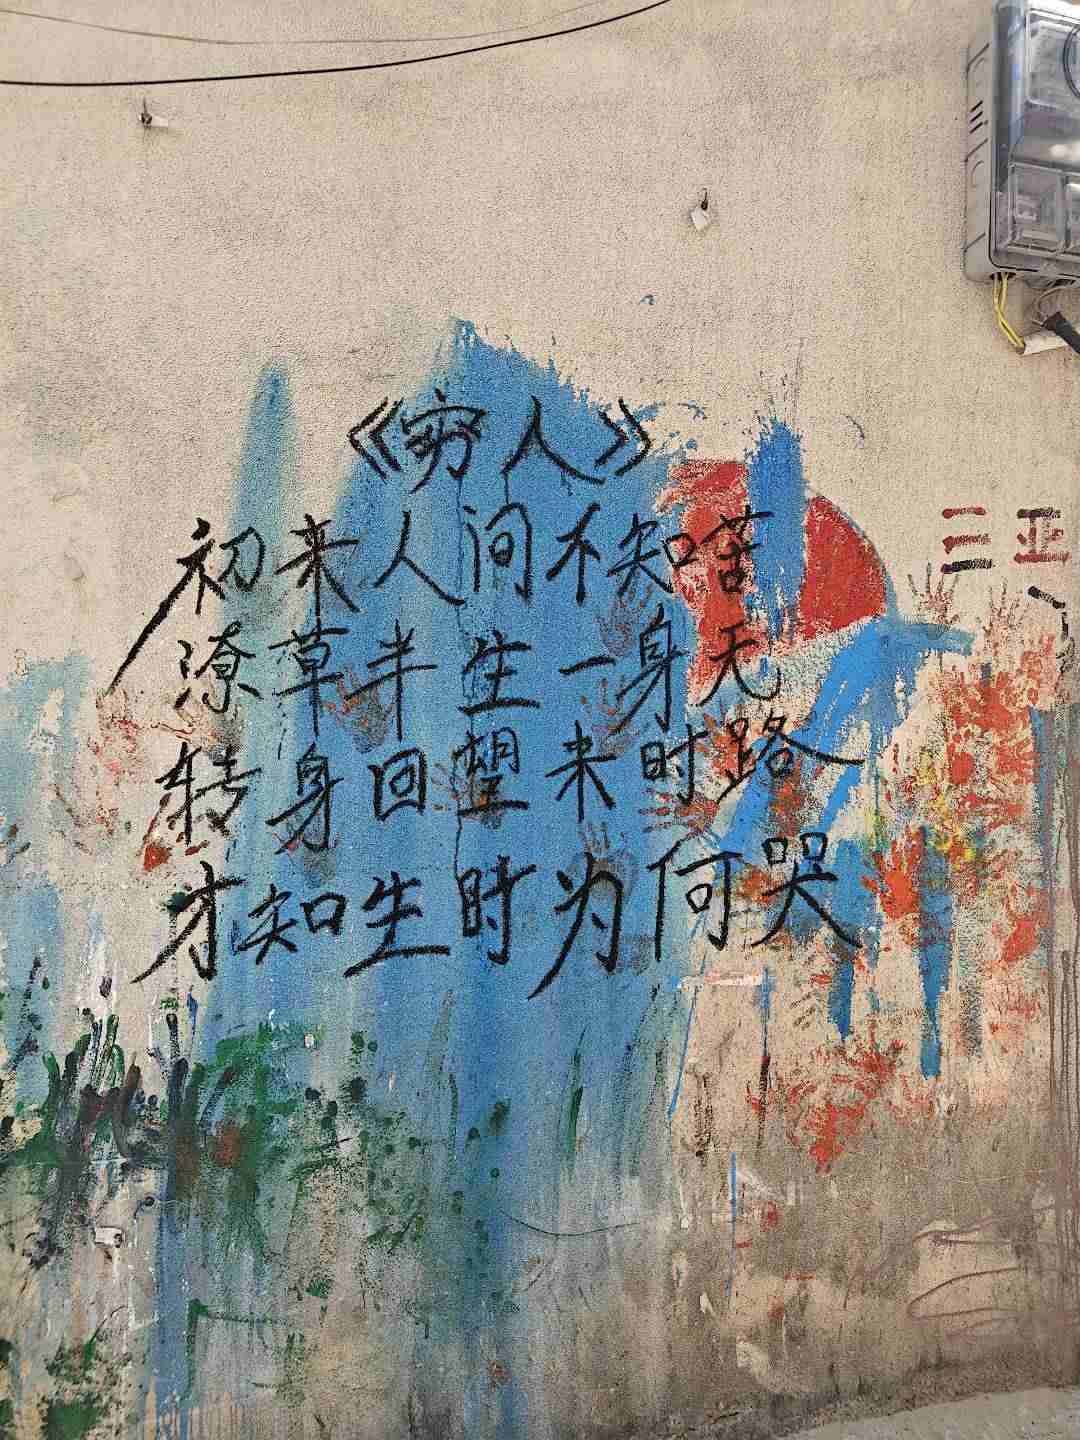 《穷人》
初来人间不知苦
潦草半生一身无
转身回望来时路
才知生时为何哭
三亚